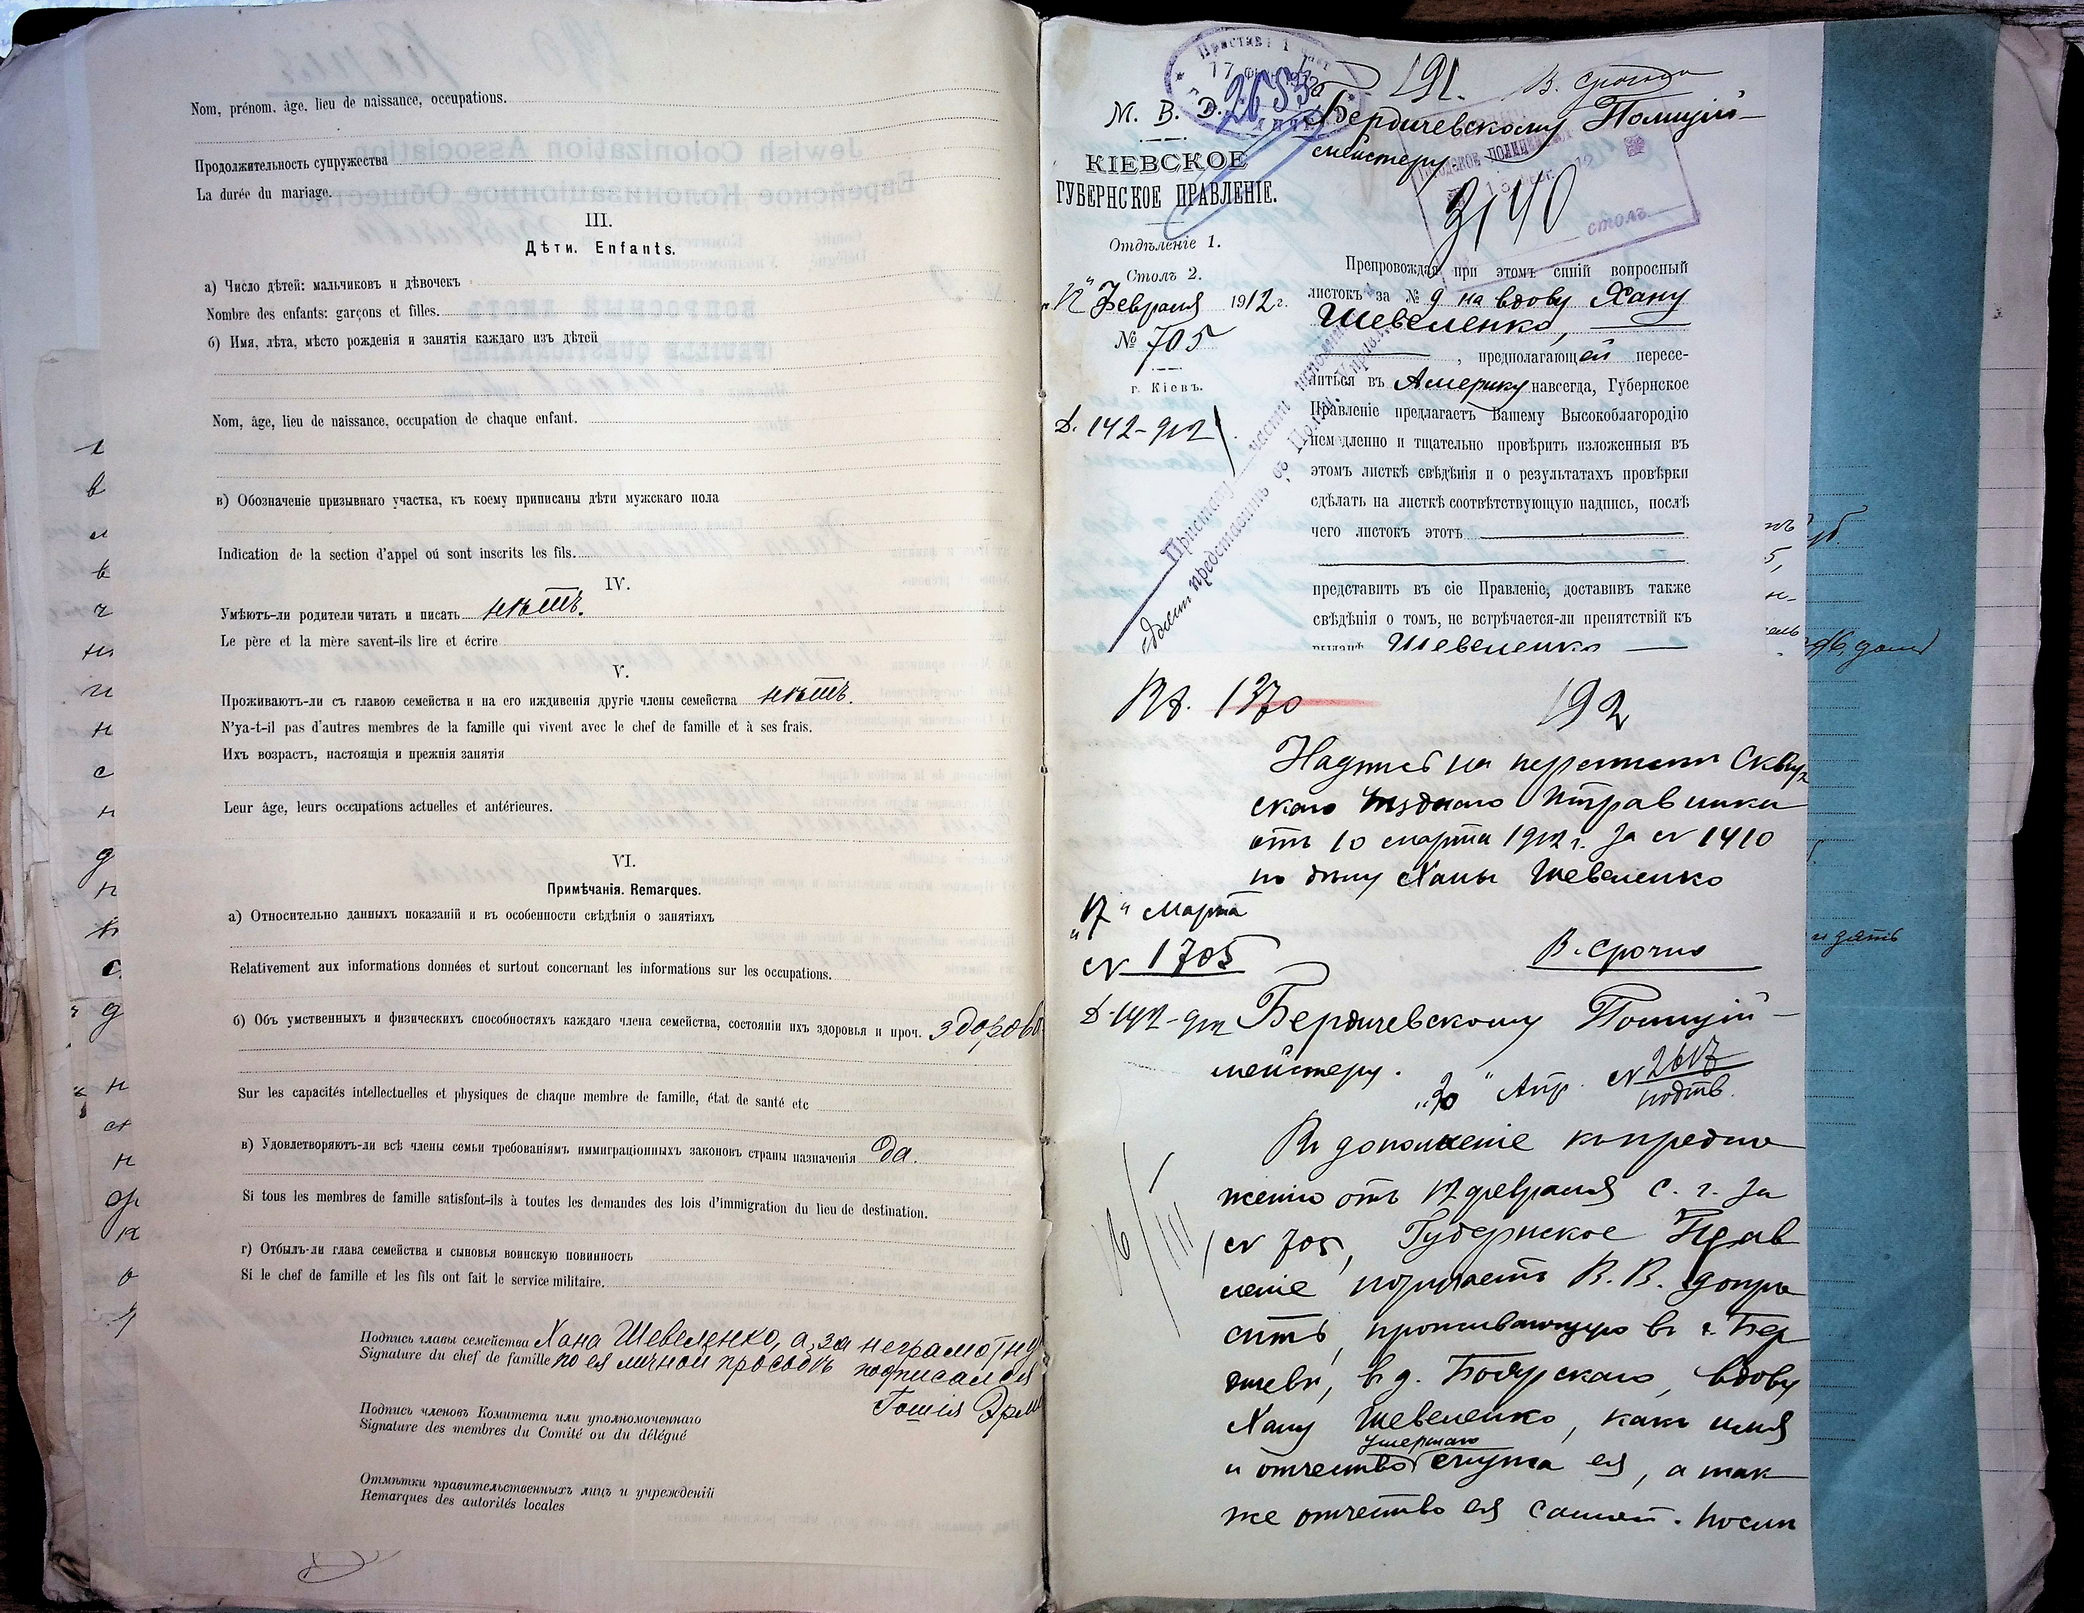 Nom, prénom, âge, lieu de naissance, occupations.
Продолжительность супружества
La durée du mariage.
III.
Дѣти. Enfants.
а) Число дѣтей: мальчиковъ и дѣвочекъ
Nombre des enfants: garçons et filles.
б) Имя, лѣта, мѣсто рожденія и занятія каждаго изъ дѣтей
Nom, âge, lieu de naissance, occupation de chaque enfant.
в) Обозначеніе призывнаго участка, къ коему приписаны дѣти мужскаго пола
Indication de la section d'appel oú sont inscrits les fils.
IV.
Умѣютъ-ли родители читать и писать нѣтъ.
Le père et la mère savent-ils lire et écrire
V.
Проживаютъ-ли съ главою семейства и на его иждивенія другіе члены семейства нѣтъ.
N'ya-t-il pas d'autres membres de la famille qui vivent avec le chef de famille et à ses frais.
Ихъ возрастъ, настоящія и прежнія занятія
Leur âge, leurs occupations actuelles et antérieures.
VI.
Примѣчанія. Remarques.
а) Относительно данныхъ показаній и въ особенности свѣдѣнія о занятіяхъ
Relativement aux informations données et surtout concernant les informations sur les occupations.
б) Объ умственныхъ и физическихъ способностяхъ каждаго члена семейства, состояніи ихъ здоровья и проч. здорова
Sur les capacités intellectuelles et physiques de chaque membre de famille, état de santé etc
в) Удовлетворяютъ-ли всѣ члены семьи требованіямъ иммиграціонныхъ законовъ страны назначенія да.
Si tous les membres de famille satisfont-ils à toutes les demandes des lois d'immigration du lieu de destination.
г) Отбылъ-ли глава семейства и сыновья воинскую повинность
Si le chef de famille et les fils ont fait le service militaire.
Подпись главы семейства Хана Шевеленко, а за неграмотную
Signature du chef de famille по ея личной просьбѣ подписался
Подпись членовъ Комитета или уполномоченнаго
Signature des membres du Comité ou du délégué
Отмѣтки правительственныхъ лицъ и учрежденій
Remarques des autorités locales
191.
В. срочно
2653
М. В. Д.
КІЕВСКОЕ
ГУБЕРНСКОЕ ПРАВЛЕНІЕ.
Отдѣленіе 1.
Столъ 2.
„12" Февраля 1912 г.
№ 705
г. Кіевъ.
Д. 142-912
Бердичевскому Полицій-
мейстеру
3140
столъ
Препровождая при этомъ синій вопросный
листокъ за № 9 на вдову Хану
Шевеленко,
, предполагающей пересе-
литься въ Америку навсегда, Губернское
Правленіе предлагаетъ Вашему Высокоблагородію
немедленно и тщательно провѣрить изложенныя въ
этомъ листкѣ свѣдѣнія и о результатахъ провѣрки
сдѣлать на листкѣ соотвѣтствующую надпись, послѣ
чего листокъ этотъ
представить въ сіе Правленіе, доставивъ также
свѣдѣнія о томъ, не встрѣчается-ли препятствій къ
выдачѣ Шевеленко
Приставу части исполнить
представить въ Полиц. Управл.
1370
192
Надпись на перепискѣ Сквир
скаго Уѣзднаго Исправника
отъ 10 марта 1912 г. за № 1410
по дѣлу Ханы Шевеленко
„17" Марта
№ 1705
В. срочно
Д. 142-912 Бердичевскому Полицій-
мейстеру.
„20" Апр. № 2617
подтв.
Въ дополненіе къ предло
женію отъ 12 февраля с. г. за
№ 705, Губернское Прав
леніе поручаетъ В. В. допро
сить, проживающую въ г. Бер
дичевѣ, въ д. Боярскаго, вдову
Хану Шевеленко, какъ имя
и отчество умершаго супруга ея, а так
же отчество ея самой. Посли